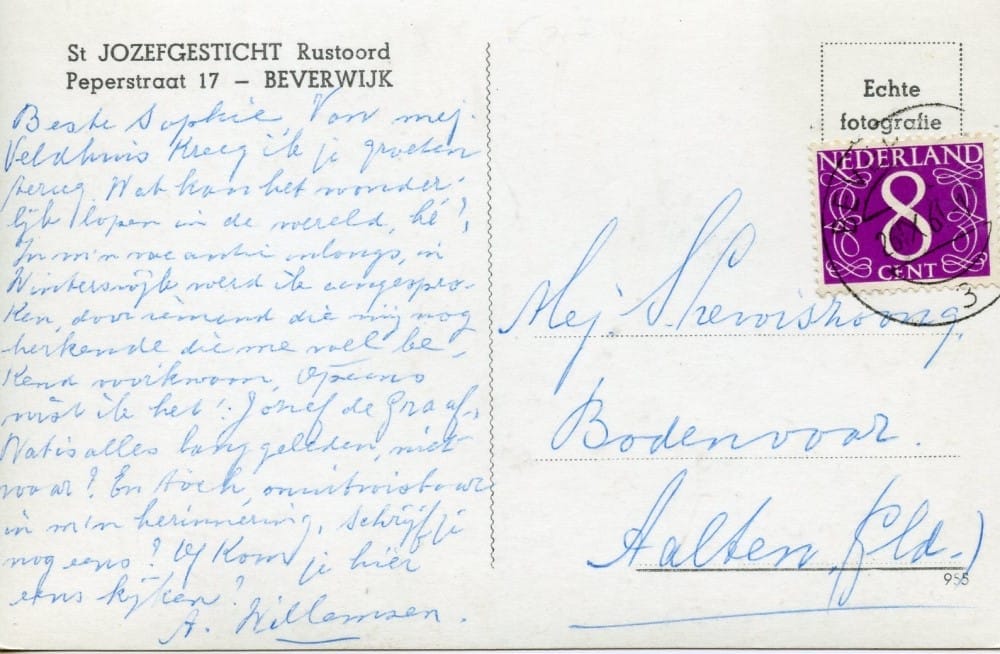 St JOZEFGESTICHT Rustoord
Peperstraat 17 – BEVERWIJK
Beste Sophie, Van mej.
Veldhuis kreeg ik je groeten
terug. Wat kan het wonder-
lijk lopen in de wereld, hè?,
In m'n vacantie onlangs, in
Winterswijk werd ik aangespro-
ken, door iemand die mij nog
herkende die me wel be-
kend voorkwam, Opeens
wist ik het! Jozef de Graaf.
Wat is alles lang geleden, niet
waar? En toch, onuitwisbaar
in m'n herinnering. Schrijf je
nog eens? Of kom je hier
eens kijken?
A. Willemsen.
Echte
fotografie
NEDERLAND
8
CENT
3
Mej. S.
Bodenvoor.
Aalten, (Gld.)
955